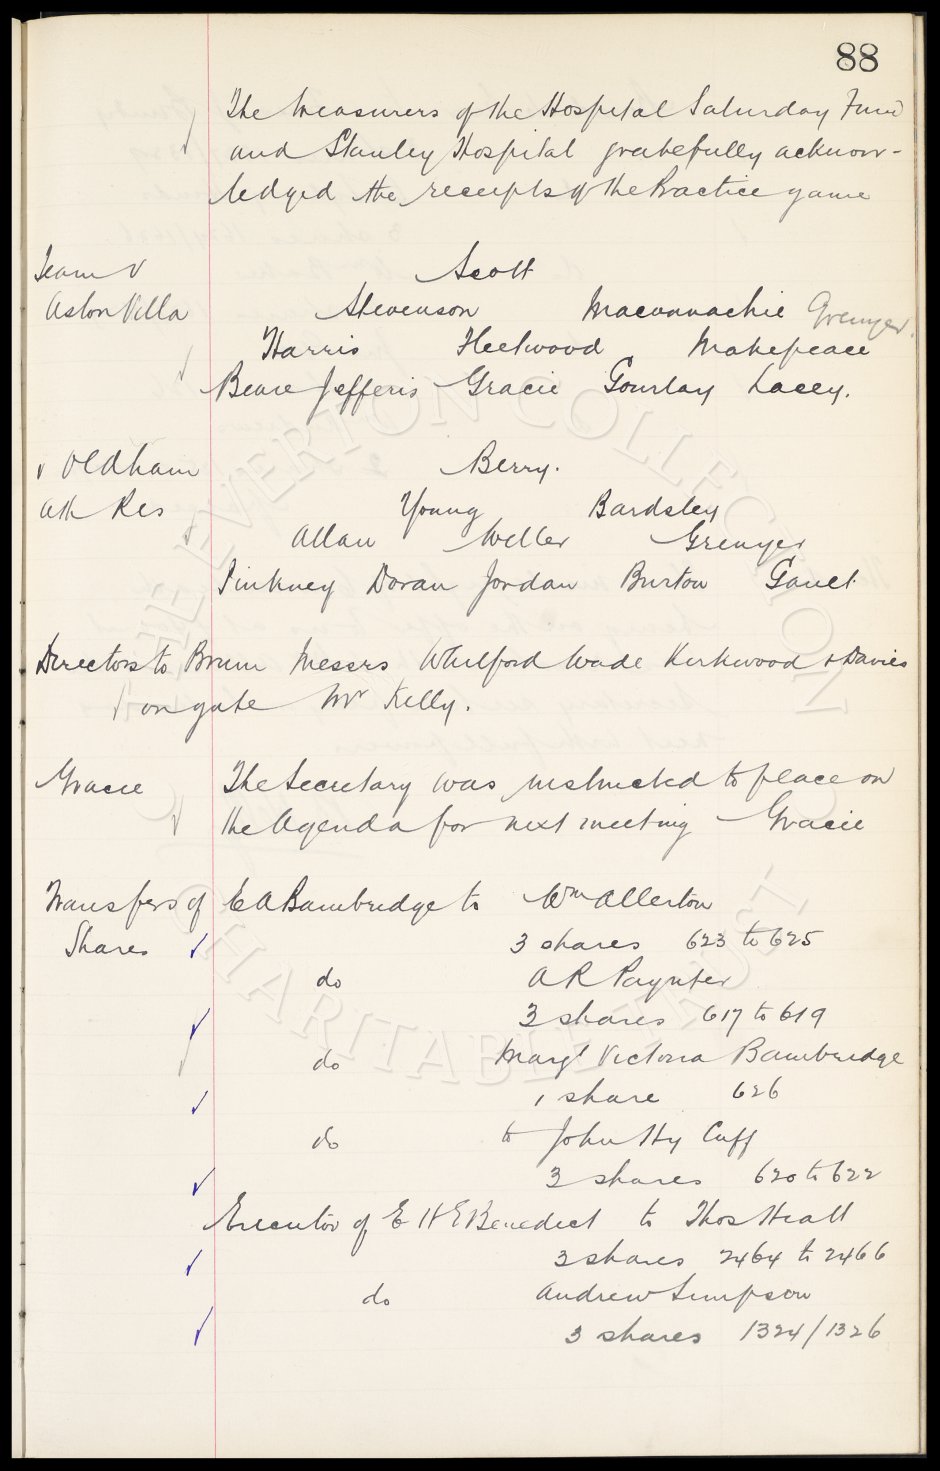 88
The treasurers of the Hospital Saturday Fund
and Stanley Hospital gratefully acknow-
ledged the receipts of the Practice game
Team v Scott
Aston Villa Stevenson Maconnachie Grenyer.
Harris Fleetwood Makepeace
Beare Jefferis Gracie Gourlay Lacey.
v Oldham Berry.
Ath Res Young Bardsley
Allan Weller Grenyer
Pinkney Doran Jordan Burton Gault
Directors to Brum Messrs Whitford Wade Kirkwood & Davies
on gate Mr Kelly.
Gracie The Secretary was instructed to place on
the Agenda for next meeting Gracie
Transfers of E A Bambridge to Wm Allerton
Shares 3 shares 623 to 625
do A R Paynter
3 shares 617 to 619
do Margt Victoria Bambridge
1 share 626
do to John Hy Cuff
3 shares 620 to 622
Executor of E H E Benedict to Thos Hiatt
3 shares 2464 to 2466
do Andrew Simpson
3 shares 1324/1326
THE EVERTON COLLECTION
CHARITABLE TRUST